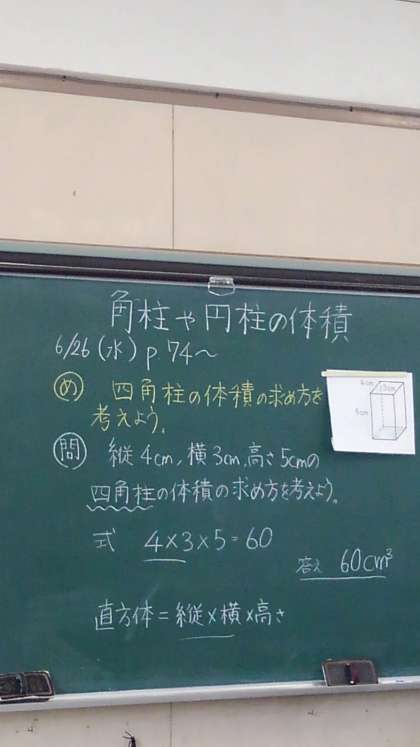 角柱や円柱の体積
6/26(水) p.74〜
め 四角柱の体積の求め方を
考えよう。
4cm 3cm
5cm
問 縦4cm,横3cm,高さ5cmの
四角柱の体積の求め方を考えよう。
式 4×3×5=60
答え 60cm³
直方体=縦×横×高さ